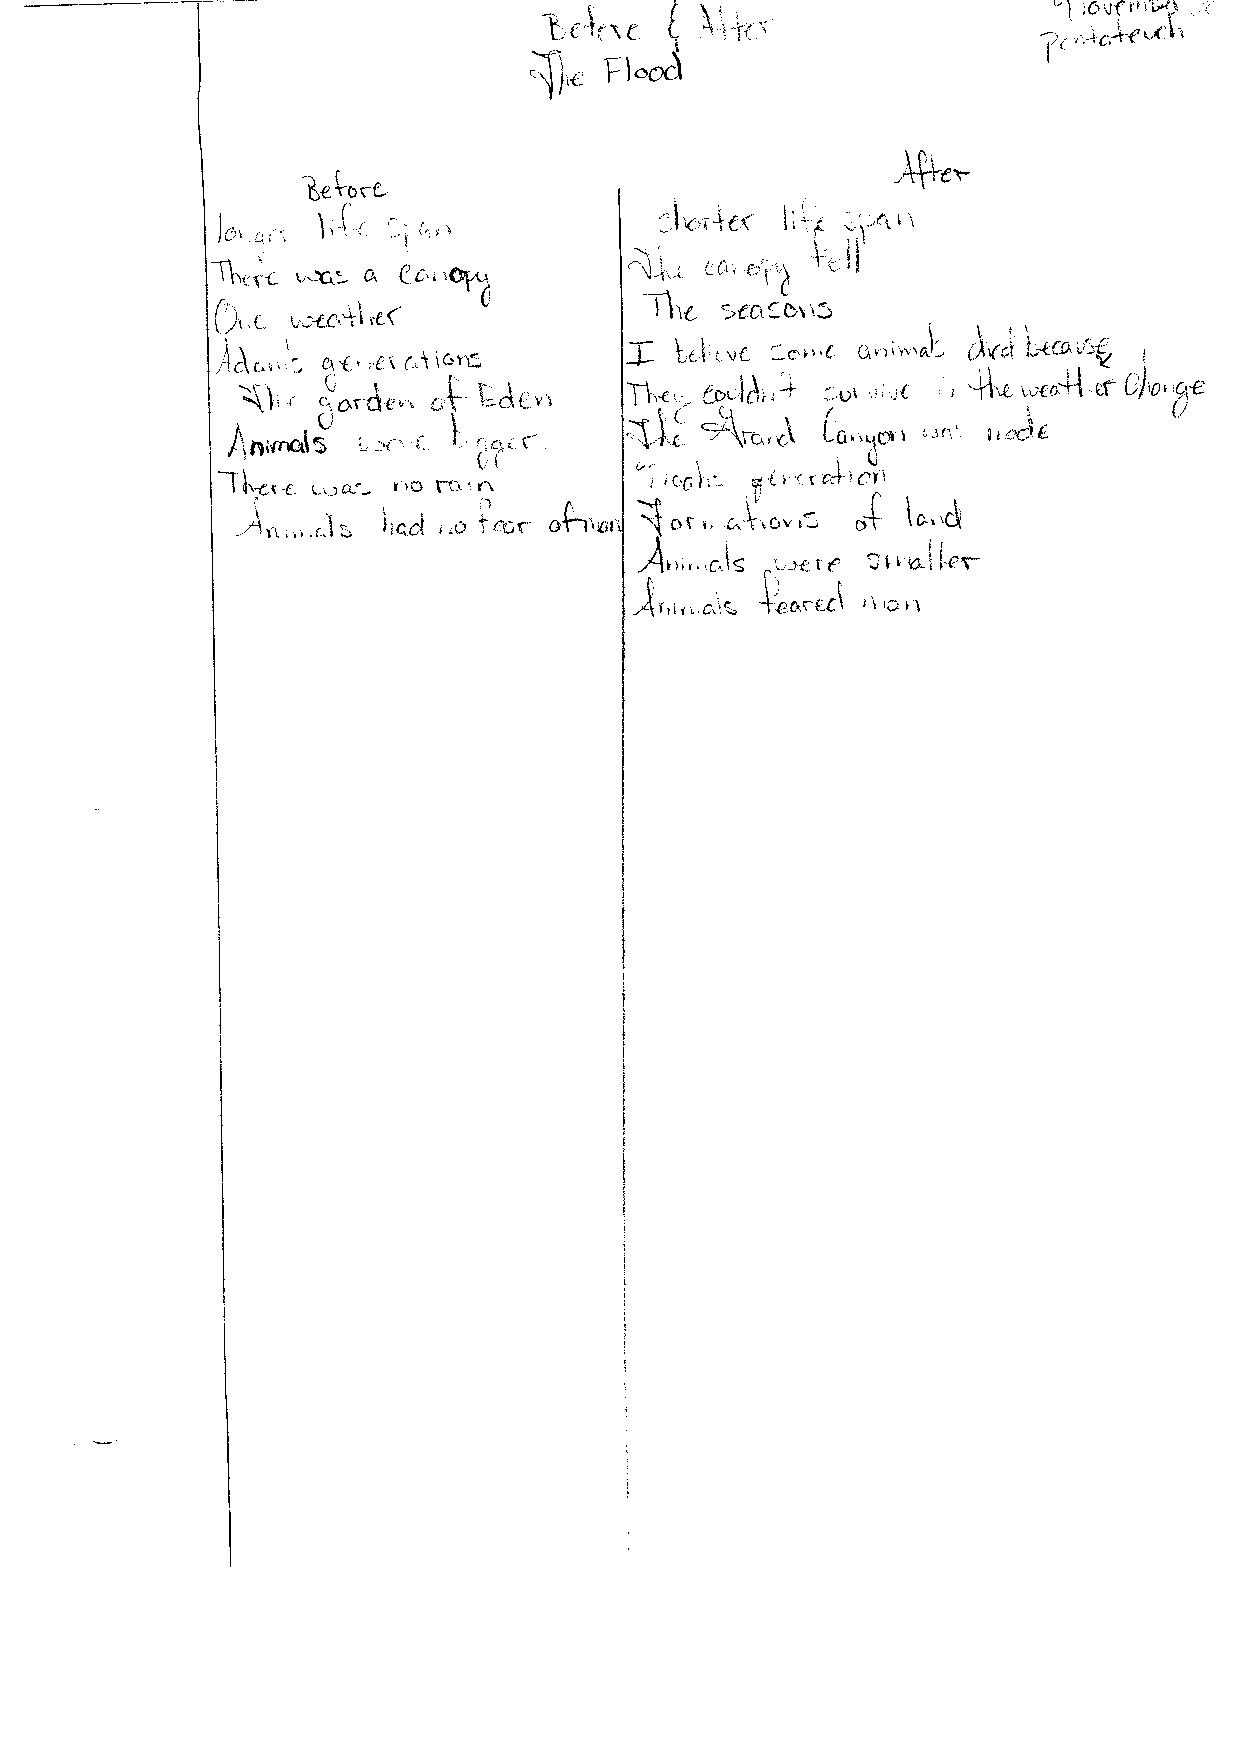 Before & After
The Flood
November
Pentateuch
Before
longer life span
There was a canopy
One weather
Adam's generations
The garden of Eden
Animals were bigger
There was no rain
Animals had no fear of man
After
shorter life span
The canopy fell
The seasons
I believe some animals died because
They couldn't survive in the weather Change
The Grand Canyon was made
Noahs generation
Formations of land
Animals were smaller
Animals feared man